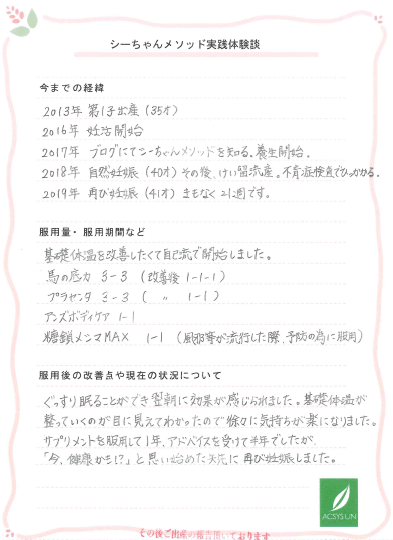 シーちゃんメソッド実践体験談
今までの経緯
2013年 第1子出産（35才）
2016年 妊活開始
2017年 ブログにてシーちゃんメソッドを知る。養生開始。
2018年 自然妊娠（40才）その後、けい留流産。不育症検査でひっかかる。
2019年 再び妊娠（41才）まもなく21週です。
服用量・服用期間など
基礎体温を改善したくて自己流で開始しました。
馬の底力 3-3（改善後 1-1-1）
プラセンタ 3-3（ 〃 1-1）
アンズボディケア 1-1
糖鎖メンマMAX 1-1（風邪等が流行した際、予防の為に服用）
服用後の改善点や現在の状況について
ぐっすり眠ることができ翌朝に効果が感じられました。基礎体温が
整っていくのが目に見えてわかったので徐々に気持ちが楽になりました。
サプリメントを服用して1年、アドバイスを受けて半年でしたが、
「今、健康かも!?」と思い始めた矢先に再び妊娠しました。
ACSYSUN
その後ご出産の報告頂いております